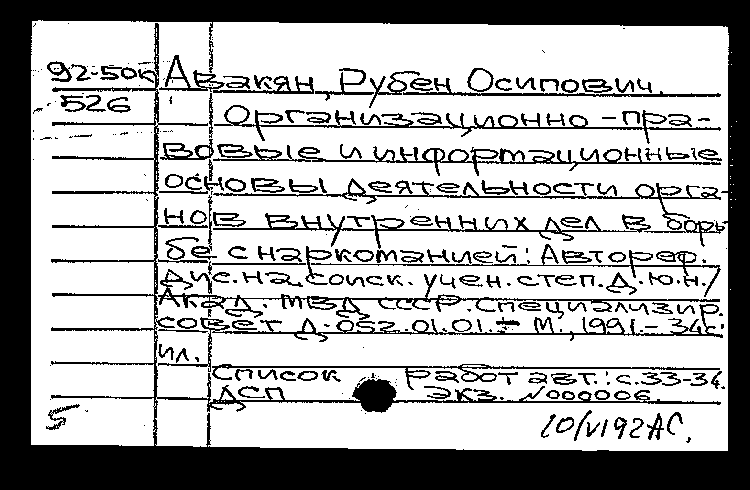 92-50к Авакян, Рубен Осипович.
526 Организационно-пра-
вовые и информационные
основы деятельности орга-
нов внутренних дел в борь-
бе с наркоманией: Автореф.
дис. на соиск. учен. степ. д.ю.н./
Акад. МВД СССР. Специализир.
совет Д.052.01.01. - М., 1991. - 34с.:
ил.
Список работ авт.: с.33-34.
ДСП Экз. №000006.
5 20/VI92АС.